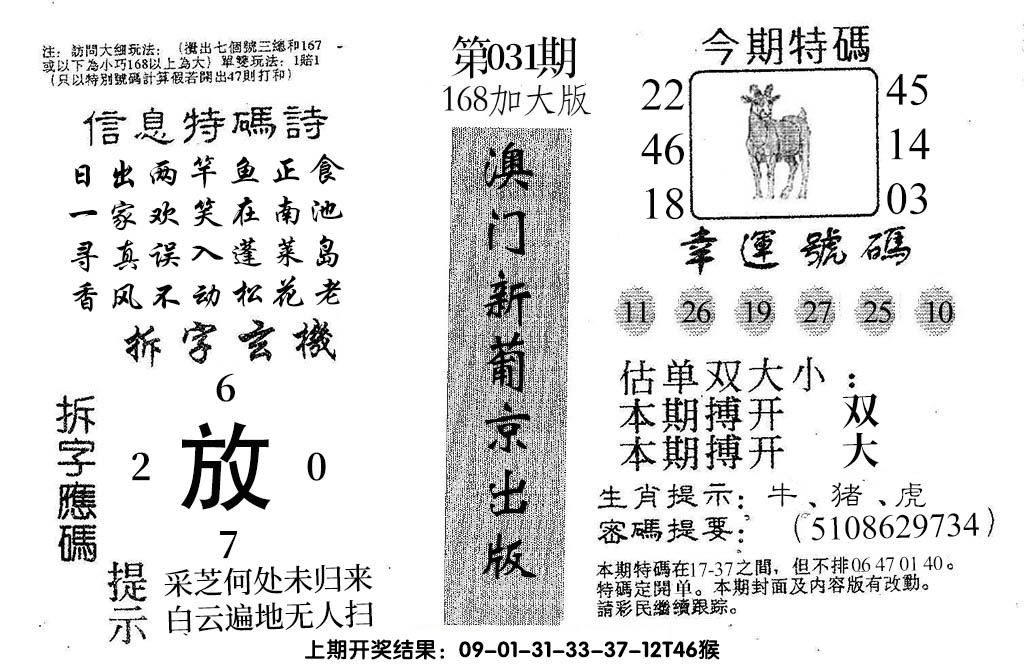 注：訪問大细玩法：（攪出七個號三總和167
或以下為小巧168以上為大）單雙玩法：1賠1
（只以特別號碼計算假若開出47則打和）
信息特碼詩
日出两竿鱼正食
一家欢笑在南池
寻真误入蓬莱岛
香风不动松花老
拆字玄機
拆字應碼
6
2 放 0
7
提示
采芝何处未归来
白云遍地无人扫
第031期
168加大版
澳门新葡京出版
今期特碼
22 45
46 14
18 03
幸運號碼
11 26 19 27 25 10
估单双大小：
本期搏开 双
本期搏开 大
生肖提示：牛、猪、虎
密碼提要：（5108629734）
本期特碼在17-37之間，但不排06 47 01 40。
特碼定開单。本期封面及内容版有改動。
請彩民繼續跟踪。
上期开奖结果：09-01-31-33-37-12T46猴